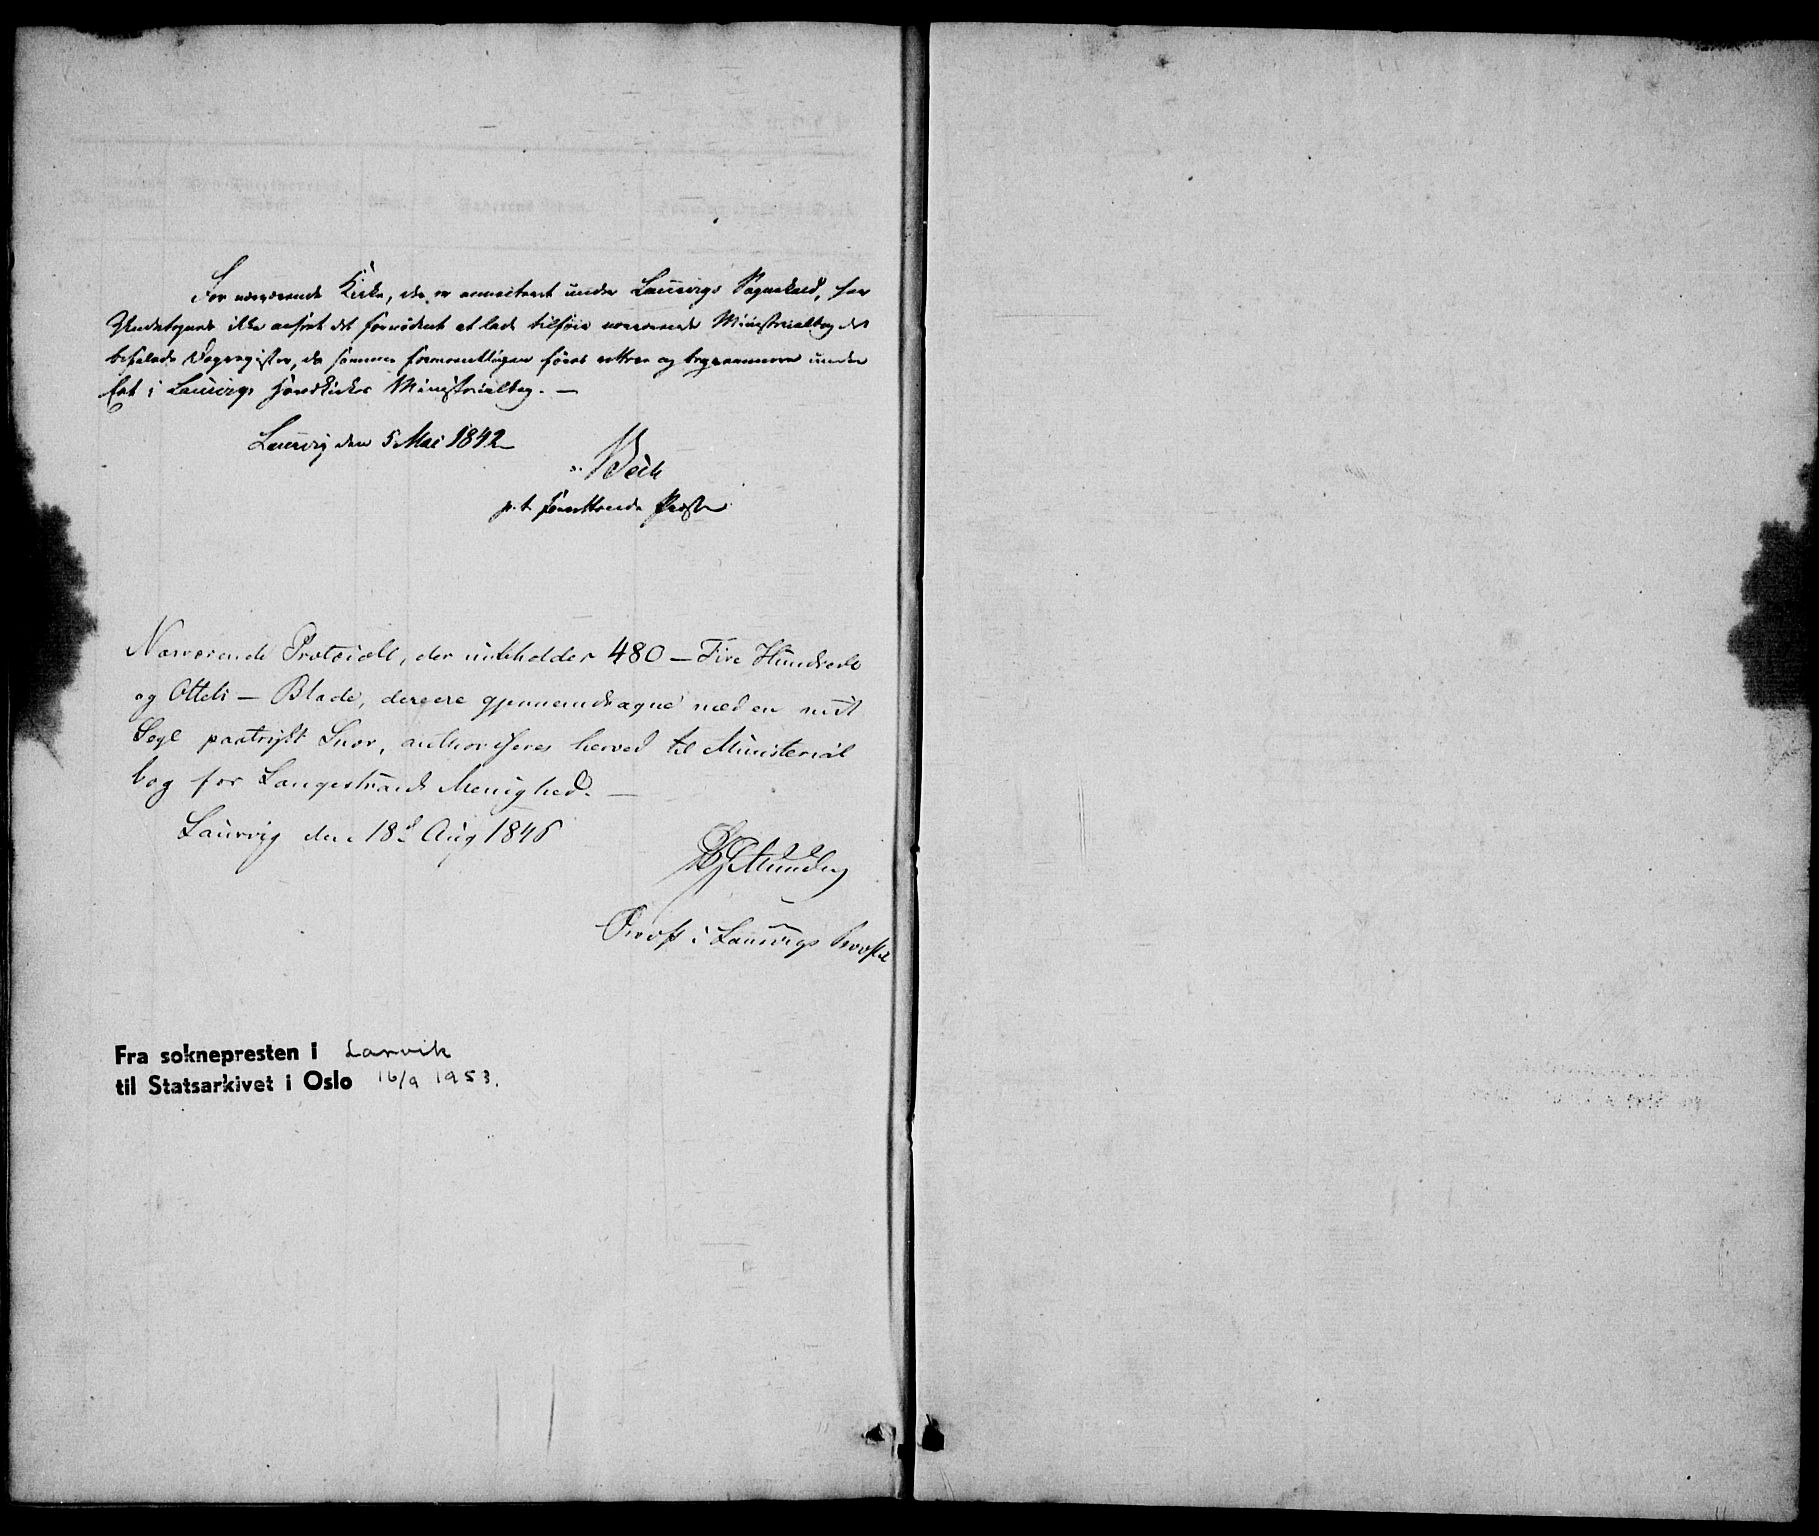 For nærværende Kirke, der er annecteret under Laurvigs Sognekald, har
Undertegnede ikke anseet det fornødent at lade tilføie nærværende Ministerialbog det
befalede Dagregister, da samme formeentligen føres rettere og begvemmere under
Eet i Laurvigs Hovedkirkes Ministerialbog. —
Laurvig den 5 Mai 1842
Bech
p. t. forrettende Præst
Nærværende Protocoll, der indeholder 480 — Fire Hundrede
og Otteti — Blade, der ere gjennemdragne med en mit
Segl paatrykt Snor, authoriseres herved til Ministerial
bog for Langestrands Menighed. —
Laurvig den 18d Aug 1846
Provst i Laurvigs Provsti
Fra soknepresten i Larvik
til Statsarkivet i Oslo 16/9 1953.